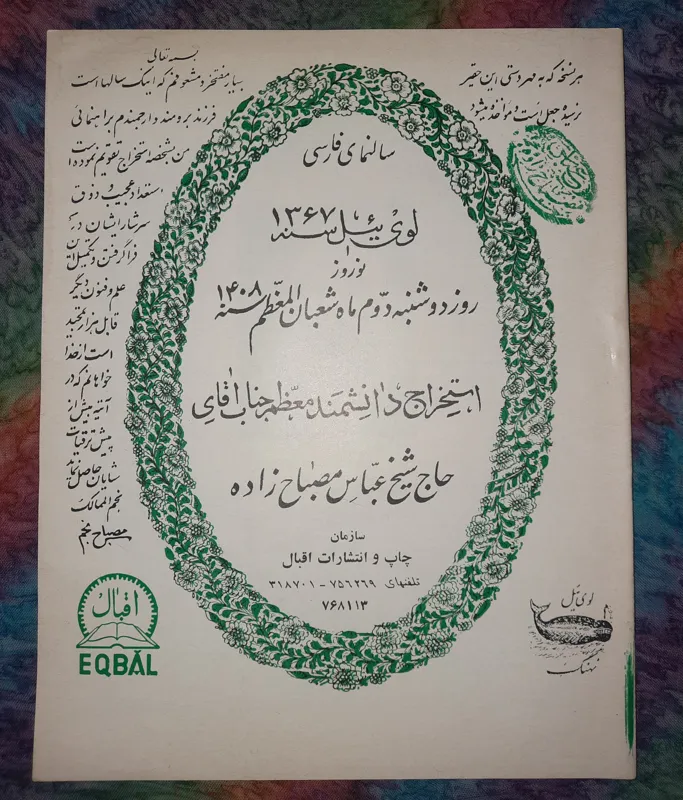 بسمه تعالی
بسیار مفتخر و مشعوفم که اینک سالها است
فرزند برومند ارجمندم براهنمائی
من بشخصه استخراج تقویم نموده است
استعداد عجیب و ذوق
سرشار ایشان در
فرا گرفتن و تکمیل این
علم و فنون دیگر
قابل هزار تمجید
است از خدا
خواهانم که در
آتیه بیش از
پیش ترقیات
شایان حاصل نماید
نجم الممالک
مصباح منجم
هر نسخه که به مهر دستی این حقیر
نرسیده جعل است و مواخذه میشود
سالنمای فارسی
لوی ئیل سنه ۱۳۶۷
نوروز
روز دوشنبه دوّم ماه شعبان المعظّم سنه ۱۴۰۸
استخراج دانشمند معظّم جناب آقای
حاج شیخ عبّاس مصباح زاده
سازمان
چاپ و انتشارات اقبال
تلفنهای ۷۵۶۲۶۹ - ۳۱۸۷۰۱
۷۶۸۱۱۳
اقبال
EQBAL
لوی ئیل
نهنگ